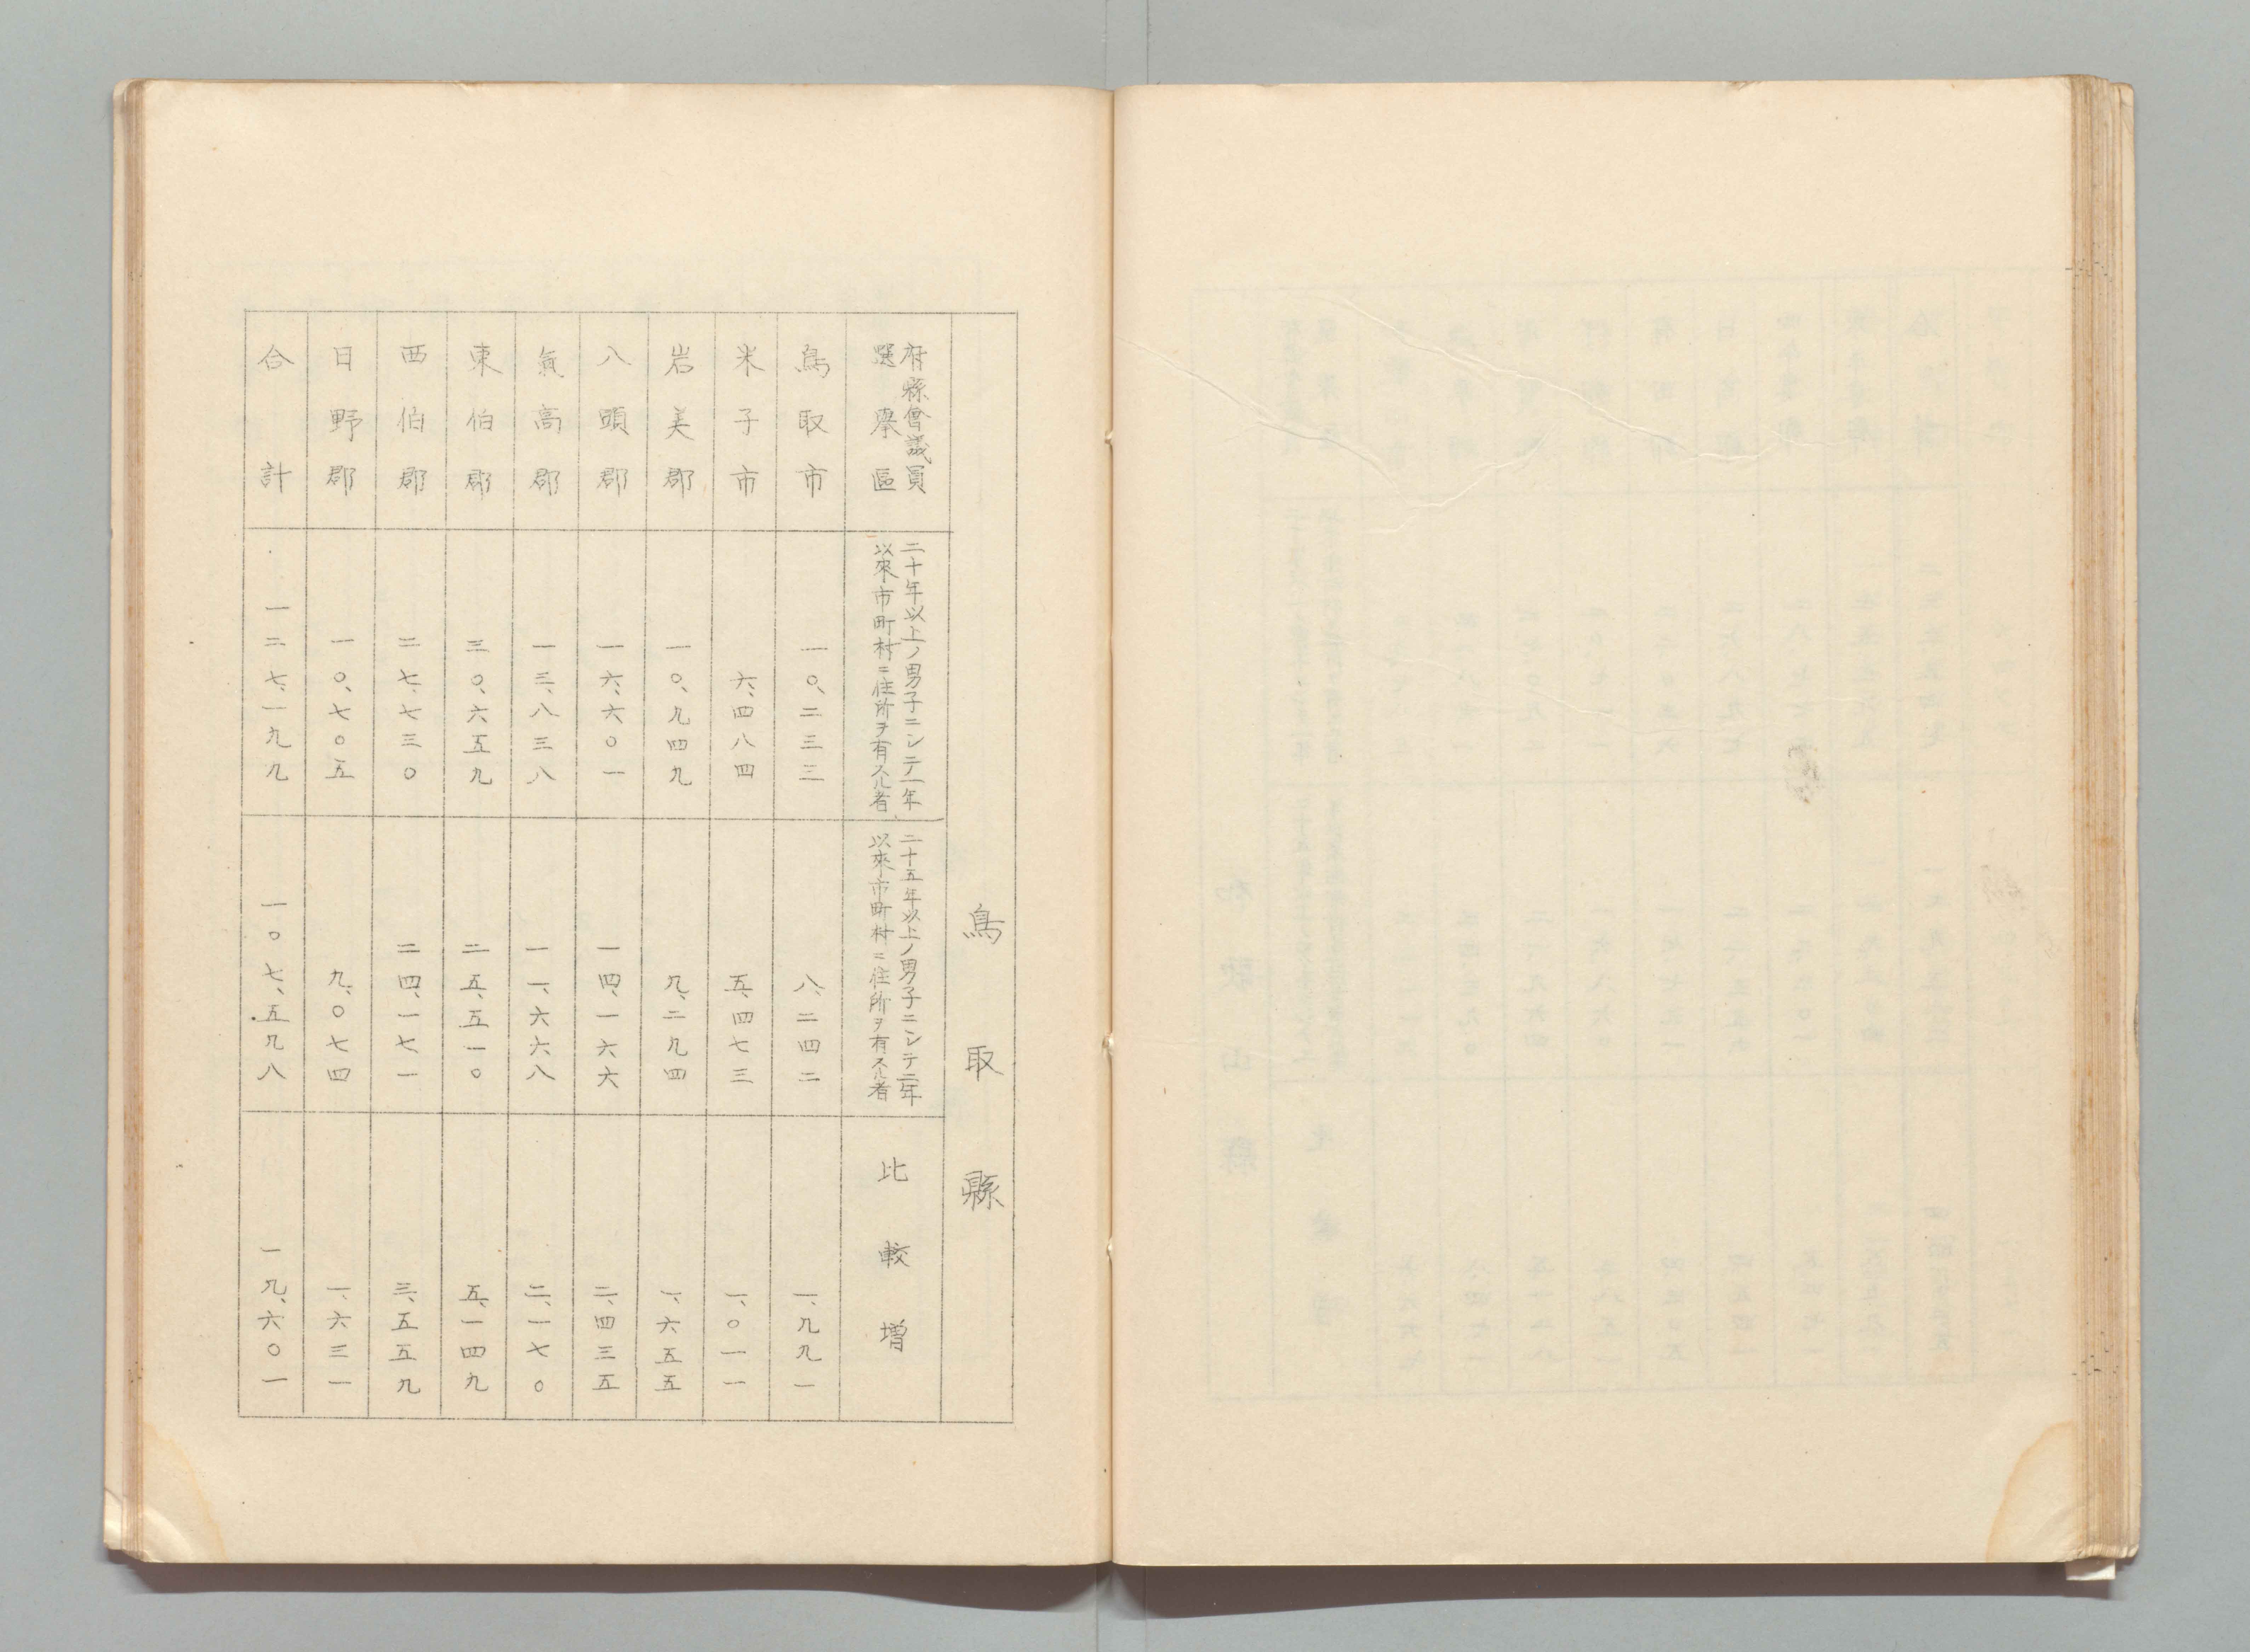 鳥取縣
府縣會議員
選擧區
二十年以上ノ男子ニシテ一年
以來市町村ニ住所ヲ有スル者
二十五年以上ノ男子ニシテ二年
以來市町村ニ住所ヲ有スル者
比較増
鳥取市 一〇、二三三 八、二四二 一、九九一
米子市 六、四八四 五、四七三 一、〇一一
岩美郡 一〇、九四九 九、二九四 一、六五五
八頭郡 一六、六〇一 一四、一六六 二、四三五
氣高郡 一三、八三八 一一、六六八 二、一七〇
東伯郡 三〇、六五九 二五、五一〇 五、一四九
西伯郡 二七、七三〇 二四、一七一 三、五五九
日野郡 一〇、七〇五 九、〇七四 一、六三一
合計 一二七、一九九 一〇七、五九八 一九、六〇一